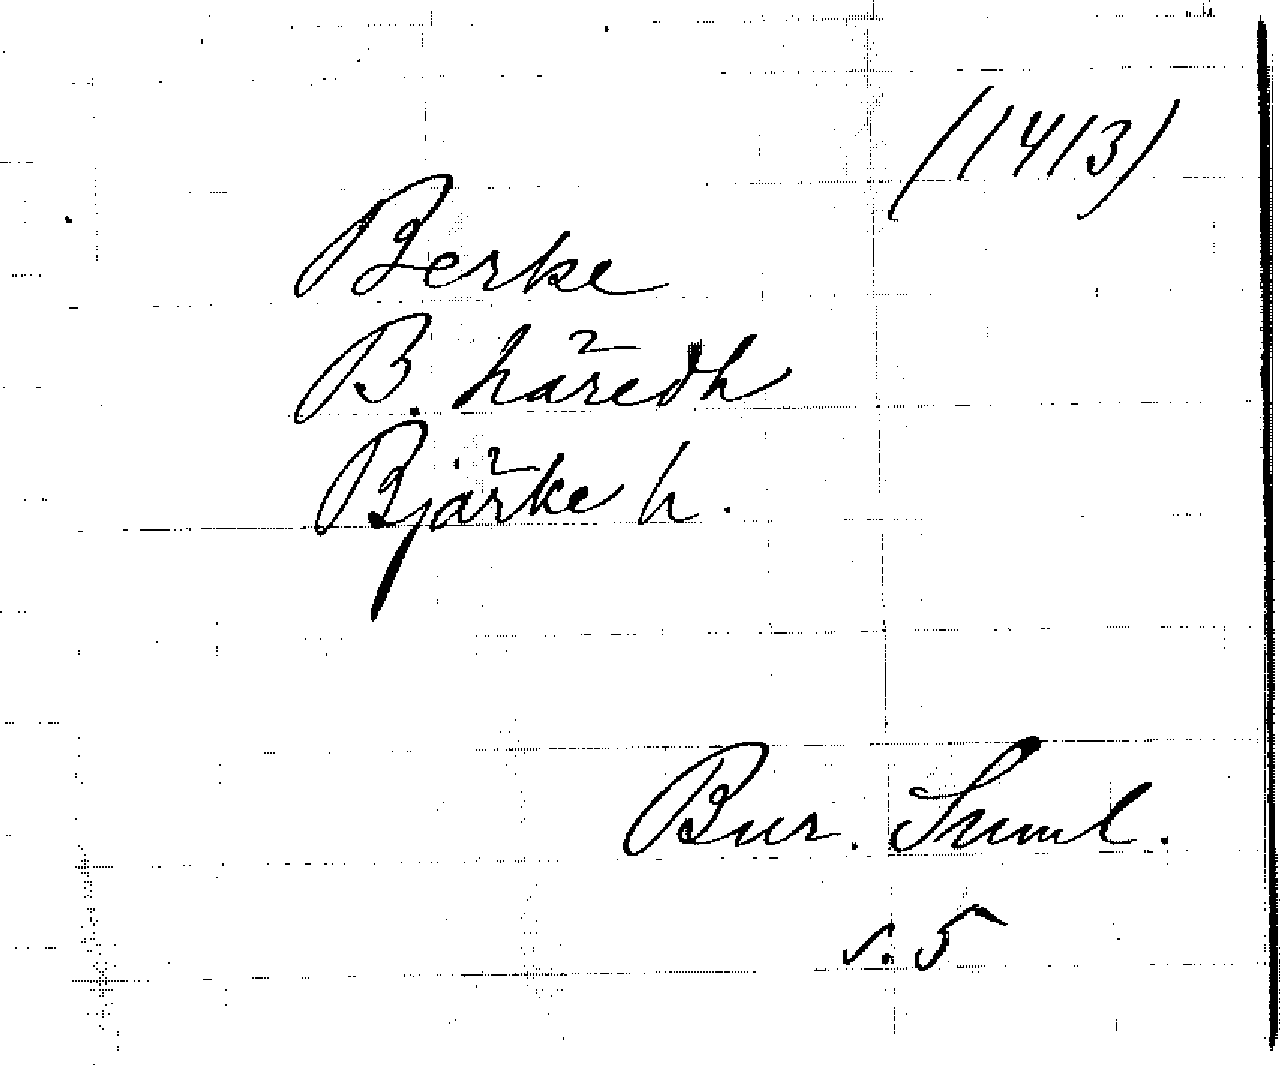 (1413)
Berke
B. häredh
Bjärke h.
Bur. Suml.
s. 5